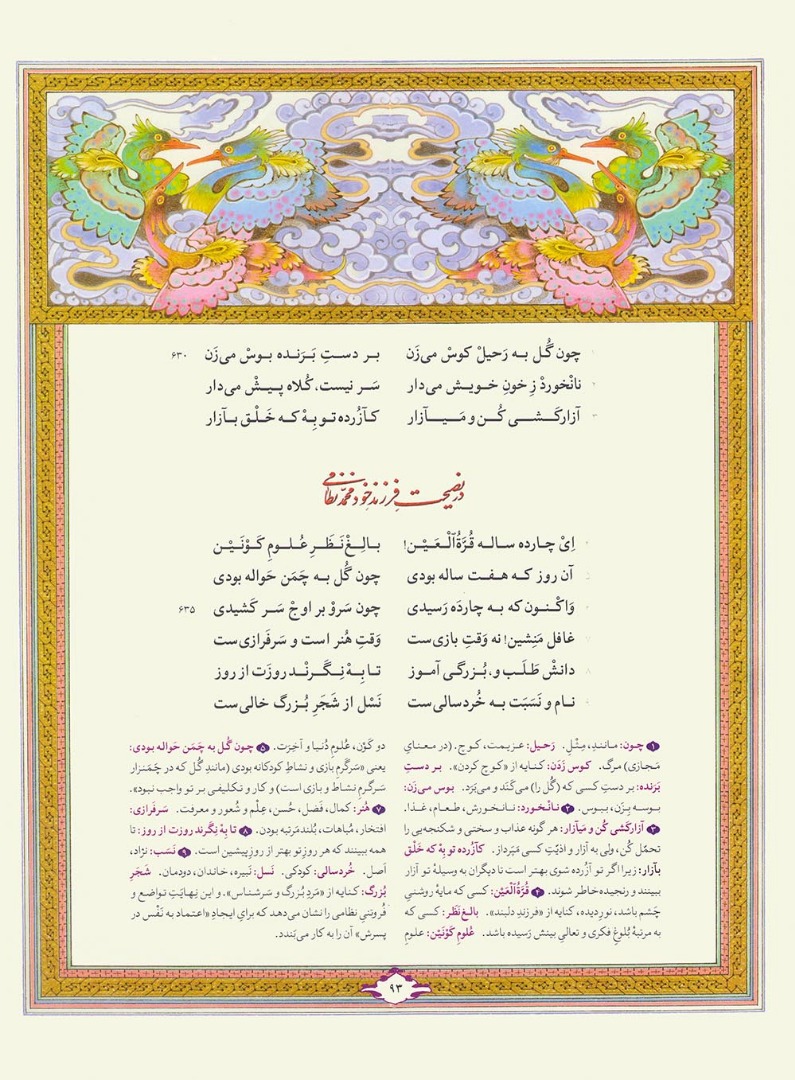 ۱ چون گُل به رَحیلْ کوسْ می‌زَن بر دستِ بَرَنده بوسْ می‌زَن ۶۳۰
۲ نانْخوردْ زِ خونِ خویش می‌دار سَر نیست، کُلاه پیشْ می‌دار
۳ آزارکَشی کُن و مَیازار کآزُرده تو بِهْ که خَلْق بآزار
در نصیحتِ فرزندِ خود محمّد نظامی
۴ اِیْ چارده ساله قُرَّةُ‌الْعَیْن! بالِغْ‌نَظَرِ عُلومِ کَوْنَیْن
۵ آن روز که هفت ساله بودی چون گُل به چَمَن حَواله بودی
۶ وَاکْنون که به چاردَه رَسیدی چون سَرْوْ بر اوجْ سَر کَشیدی ۶۳۵
۷ غافل مَنِشین! نه وَقتِ بازی‌ست وَقتِ هُنر است و سَرفَرازی‌ست
۸ دانشْ طَلَب و، بُزرگی آموز تا بِهْ نِگَرند روزَت از روز
۹ نام و نَسَبَت به خُردسالی‌ست نَسْل از شَجَرِ بُزرگ خالی‌ست
۱ چون: مانند، مِثْلِ. رَحیل: عزیمت، کوچ. (در معنایِ
مَجازی) مرگ. کوس زَدَن: کنایه از «کوچ کردن». بر دستِ
بَرَنده: بر دستِ کسی که (گُل را) می‌کَنَد و می‌بَرَد. بوس می‌زن:
بوسه بِزَن، ببوس. ۲ نانْخورد: نانخورش، طَعام، غَذا.
۳ آزارکَشی کُن و مَیآزار: هر گونه عذاب و سختی و شکنجه‌یی را
تحمّل کُن، ولی به آزار و اذیّتِ کسی مَپرداز. کآزُرده تو بِه که خَلْق
بآزار: زیرا اگر تو آزُرده شوی بهتر است تا دیگران به وسیلهٔ تو آزار
ببینند و رنجیده‌خاطر شوند. ۴ قُرَّةُ‌الْعَیْن: کسی که مایهٔ روشنیِ
چَشم باشد، نورِدیده، کنایه از «فرزندِ دلبند». بالغ‌نَظَر: کسی که
به مرتبهٔ بُلوغِ فکری و تعالیِ بینش رَسیده باشد. عُلومِ کَوْنَیْن: علومِ
دو کَوْن، عُلومِ دُنیا و آخِرَت. ۵ چون گُل به چَمَن حَواله بودی:
یعنی «سَرگَرمِ بازی و نشاطِ کودکانه بودی (مانندِ گُل که در چَمَنزار
سَرگرمِ نشاط و بازی است) و کار و تکلیفی بر تو واجب نبود».
۷ هُنَر: کمال، فَضل، حُسن، عِلْم و شُعور و معرفت. سَرفرازی:
افتخار، مُباهات، بُلندمَرتبه بودن. ۸ تا بِهْ نِگَرند روزت از روز: تا
همه ببینند که هر روزِ تو بهتر از روزِ پیشین است. ۹ نَسَب: نژاد،
اَصل. خُردسالی: کودکی. نَسل: نَبیره، خاندان، دودمان. شَجَرِ
بُزرگ: کنایه از «مَردِ بُزرگ و سَرشناس». و این نِهایتِ تواضع و
فُروتنیِ نظامی را نشان می‌دهد که برایِ ایجادِ «اعتماد به نَفْس در
پسرش» آن را به کار می‌بَندد.
۹۳